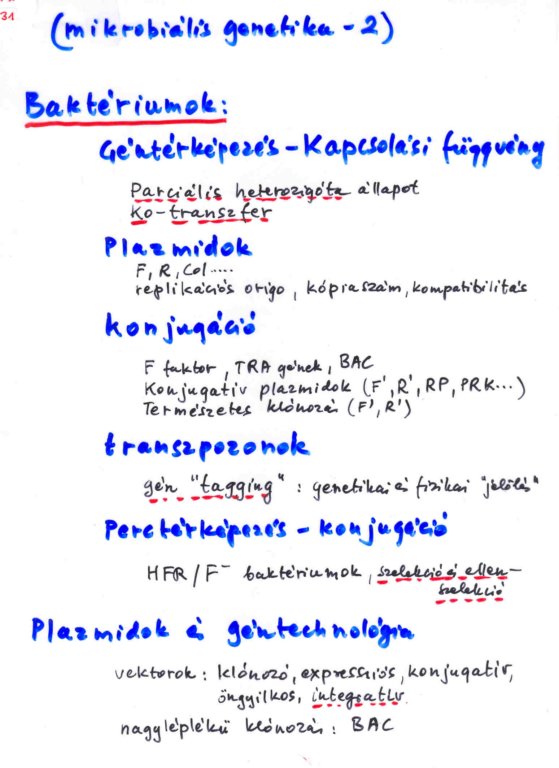 31
(mikrobiális genetika - 2)
Baktériumok:
Géntérképezés - Kapcsolási függvény
Parciális heterozigóta állapot
Ko-transzfer
Plazmidok
F, R, Col.....
replikációs origo, kópiaszám, kompatibilitás
konjugáció
F faktor, TRA gének, BAC
Konjugatív plazmidok (F', R', RP, PRK...)
Természetes klónozás (F', R')
transzpozonok
gén "tagging" : genetikai és fizikai "jelölés"
Perctérképezés - konjugáció
HFR/F⁻ baktériumok, szelekció és ellen-
szelekció
Plazmidok és géntechnológia
vektorok: klónozó, expressziós, konjugatív,
öngyilkos, integratív
nagyléptékű klónozás: BAC